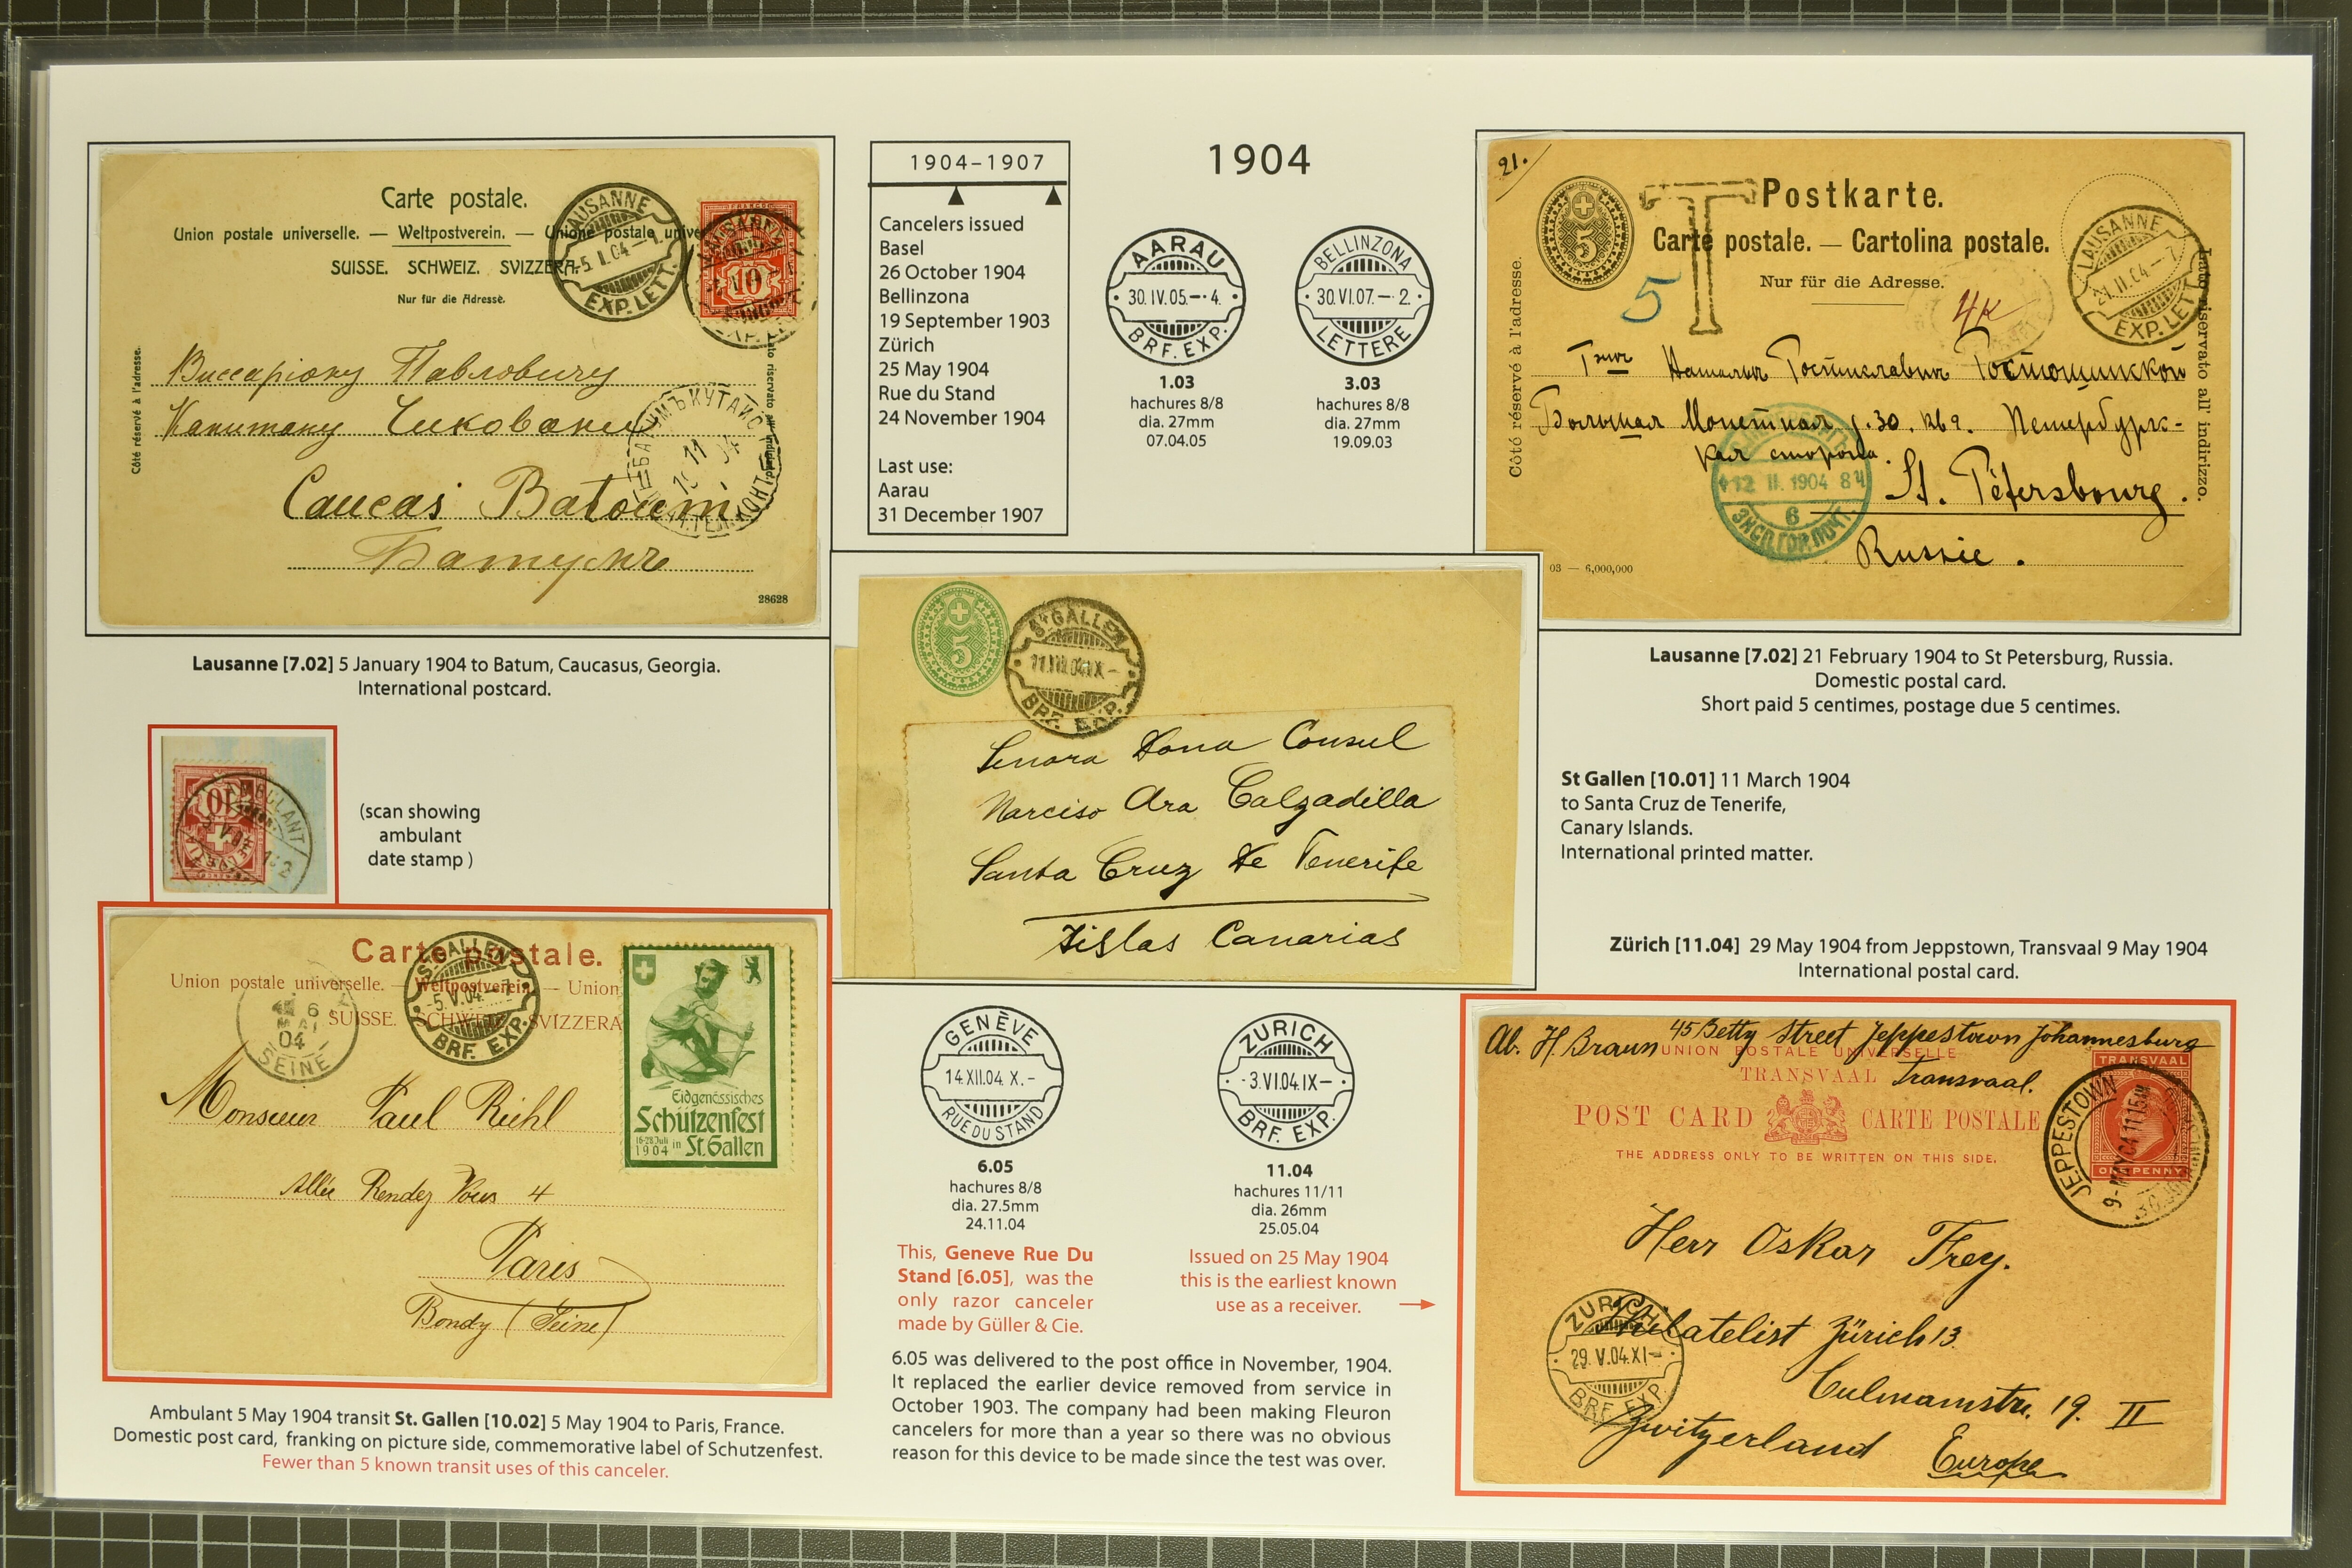 Carte postale.
Union postale universelle. — Weltpostverein. — Unione postale unive
SUISSE. SCHWEIZ. SVIZZERA.
Nur für die Adresse.
LAUSANNE
-5.I.04.—1.
EXP. LETT.
10
Côté réservé à l'adresse.
Виссаріону Павловичу
Капитану Чиковани
Caucas Batoum
Батумъ
28628
Lausanne [7.02] 5 January 1904 to Batum, Caucasus, Georgia.
International postcard.
1904–1907
Cancelers issued
Basel
26 October 1904
Bellinzona
19 September 1903
Zürich
25 May 1904
Rue du Stand
24 November 1904
Last use:
Aarau
31 December 1907
1904
AARAU
30.IV.05.—·4.
BRF. EXP.
1.03
hachures 8/8
dia. 27mm
07.04.05
BELLINZONA
30.VI.07.— 2.
LETTERE
3.03
hachures 8/8
dia. 27mm
19.09.03
21.
5
T
Postkarte.
Carte postale. — Cartolina postale.
Nur für die Adresse.
5
4K
LAUSANNE
21.II.04.—7.
EXP. LETT.
Côté réservé à l'adresse.
Lato riservato all' indirizzo.
Большая Монетная д. 30. кв 9. Петербург-
ская сторона.
12 II. 1904 8 Ч
6
St. Pétersbourg.
Russie.
03 — 6,000,000
Lausanne [7.02] 21 February 1904 to St Petersburg, Russia.
Domestic postal card.
Short paid 5 centimes, postage due 5 centimes.
5
St GALLEN
11.III.04.IX—
BRF. EXP.
Senora Dona Consul
Narciso Ara Calzadilla
Santa Cruz De Tenerife
Islas Canarias
St Gallen [10.01] 11 March 1904
to Santa Cruz de Tenerife,
Canary Islands.
International printed matter.
10
AMBULANT
(scan showing
ambulant
date stamp )
Carte postale.
Union postale universelle. — Weltpostverein. — Union
SUISSE. SCHWEIZ. SVIZZERA
St GALLEN
-5.V.04.—7.
BRF. EXP.
6
MAI
04
SEINE
Eidgenössisches
Schützenfest
16-28 Juli
1904 in St. Gallen
Monsieur Paul Riehl
Allée Rendez Vous 4
Paris
Bondy (Seine)
Ambulant 5 May 1904 transit St. Gallen [10.02] 5 May 1904 to Paris, France.
Domestic post card, franking on picture side, commemorative label of Schutzenfest.
Fewer than 5 known transit uses of this canceler.
GENÈVE
14.XII.04. X.-
RUE DU STAND
6.05
hachures 8/8
dia. 27.5mm
24.11.04
This, Geneve Rue Du
Stand [6.05], was the
only razor canceler
made by Güller & Cie.
ZURICH
-3.VI.04.IX—
BRF. EXP.
11.04
hachures 11/11
dia. 26mm
25.05.04
Issued on 25 May 1904
this is the earliest known
use as a receiver.
6.05 was delivered to the post office in November, 1904.
It replaced the earlier device removed from service in
October 1903. The company had been making Fleuron
cancelers for more than a year so there was no obvious
reason for this device to be made since the test was over.
Zürich [11.04] 29 May 1904 from Jeppstown, Transvaal 9 May 1904
International postal card.
Ab. H. Braun 45 Betty Street Jeppestown Johannesburg
Transvaal.
UNION POSTALE UNIVERSELLE
TRANSVAAL
POST CARD CARTE POSTALE
THE ADDRESS ONLY TO BE WRITTEN ON THIS SIDE.
TRANSVAAL
ONE PENNY
JEPPESTOWN
Herr Oskar Frey.
Philatelist Zürich 13.
Culmannstr. 19. II
Zwitzerland Europe
ZURICH
29.V.04.XI—
BRF. EXP.